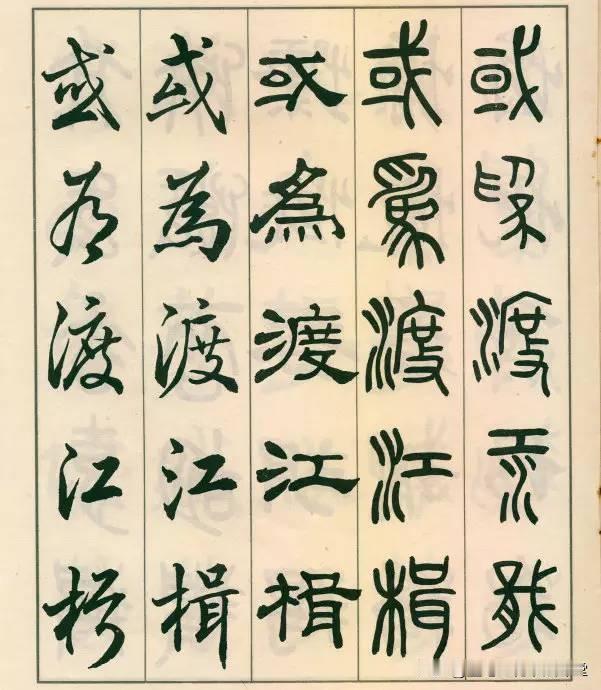 或为渡江楫
或為渡江楫
或為渡江楫
或為渡江楫
或為渡江楫